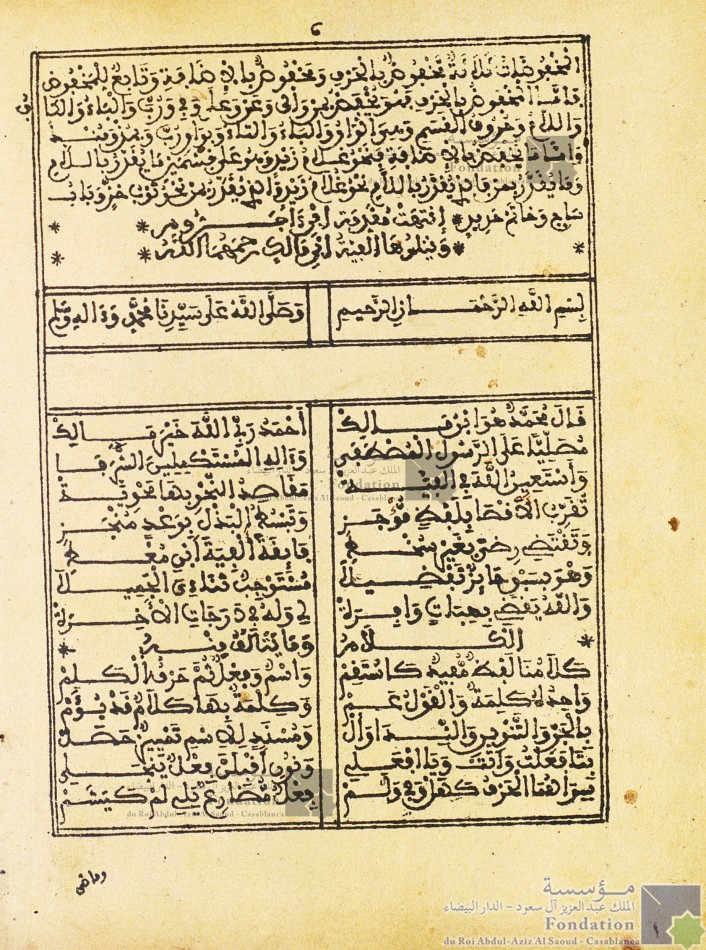 ٦
المخفوضات ثلاثة مخفوض بالحرف ومخفوض بالإضافة وتابع للمخفوض
فأما المخفوض بالحرف فهو ما يخفض بمن وإلى وعن وعلى وفي ورب والباء والكاف
واللام وحروف القسم وهي الواو والباء والتاء وبواو رب وبمذ ومنذ
وأما ما يخفض بالإضافة فنحو غلام زيد وهو على قسمين ما يقدر باللام
وما يقدر بمن فالذي يقدر باللام نحو غلام زيد والذي يقدر بمن نحو ثوب خز وباب
ساج وخاتم حديد * انتهت مقدمة ابن آجروم *
* وتتلوها ألفية ابن مالك رحمهما الله *
بسم الله الرحمان الرحيم وصلى الله على سيدنا محمد وءاله وسلم
قال محمد هو ابن مالك أحمد ربي الله خير مالك
مصليا على الرسول المصطفى وءاله المستكملين الشرفا
وأستعين الله في ألفية مقاصد النحو بها محوية
تقرب الأقصى بلفظ موجز وتبسط البذل بوعد منجز
وتقتضي رضى بغير سخط فائقة ألفية ابن معط
وهو بسبق حائز تفضيلا مستوجب ثنائي الجميلا
والله يقضي بهبات وافرة لي وله في درجات الآخرة
* الكلام وما يتألف منه *
كلامنا لفظ مفيد كاستقم واسم وفعل ثم حرف الكلم
واحده كلمة والقول عم وكلمة بها كلام قد يؤم
بالجر والتنوين والندا وال ومسند للاسم تمييز حصل
بتا فعلت وأتت ويا افعلي ونون أقبلن فعل ينجلي
سواهما الحرف كهل وفي ولم فعل مضارع يلي لم كيشم
وماضي
مؤسسة
الملك عبد العزيز آل سعود - الدار البيضاء
Fondation
du Roi Abdul-Aziz Al Saoud - Casablanca